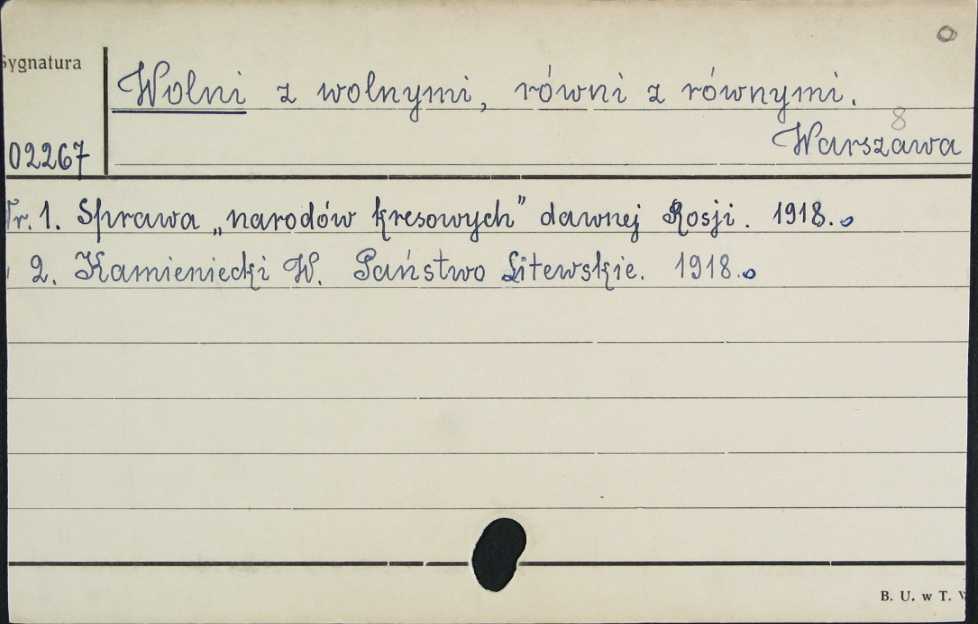 O
Sygnatura
Wolni z wolnymi, równi z równymi.
8
Warszawa
02267
Nr. 1. Sprawa „narodów kresowych” dawnej Rosji. 1918.
2. Kamieniecki W. Państwo Litewskie. 1918.
B. U. w T.